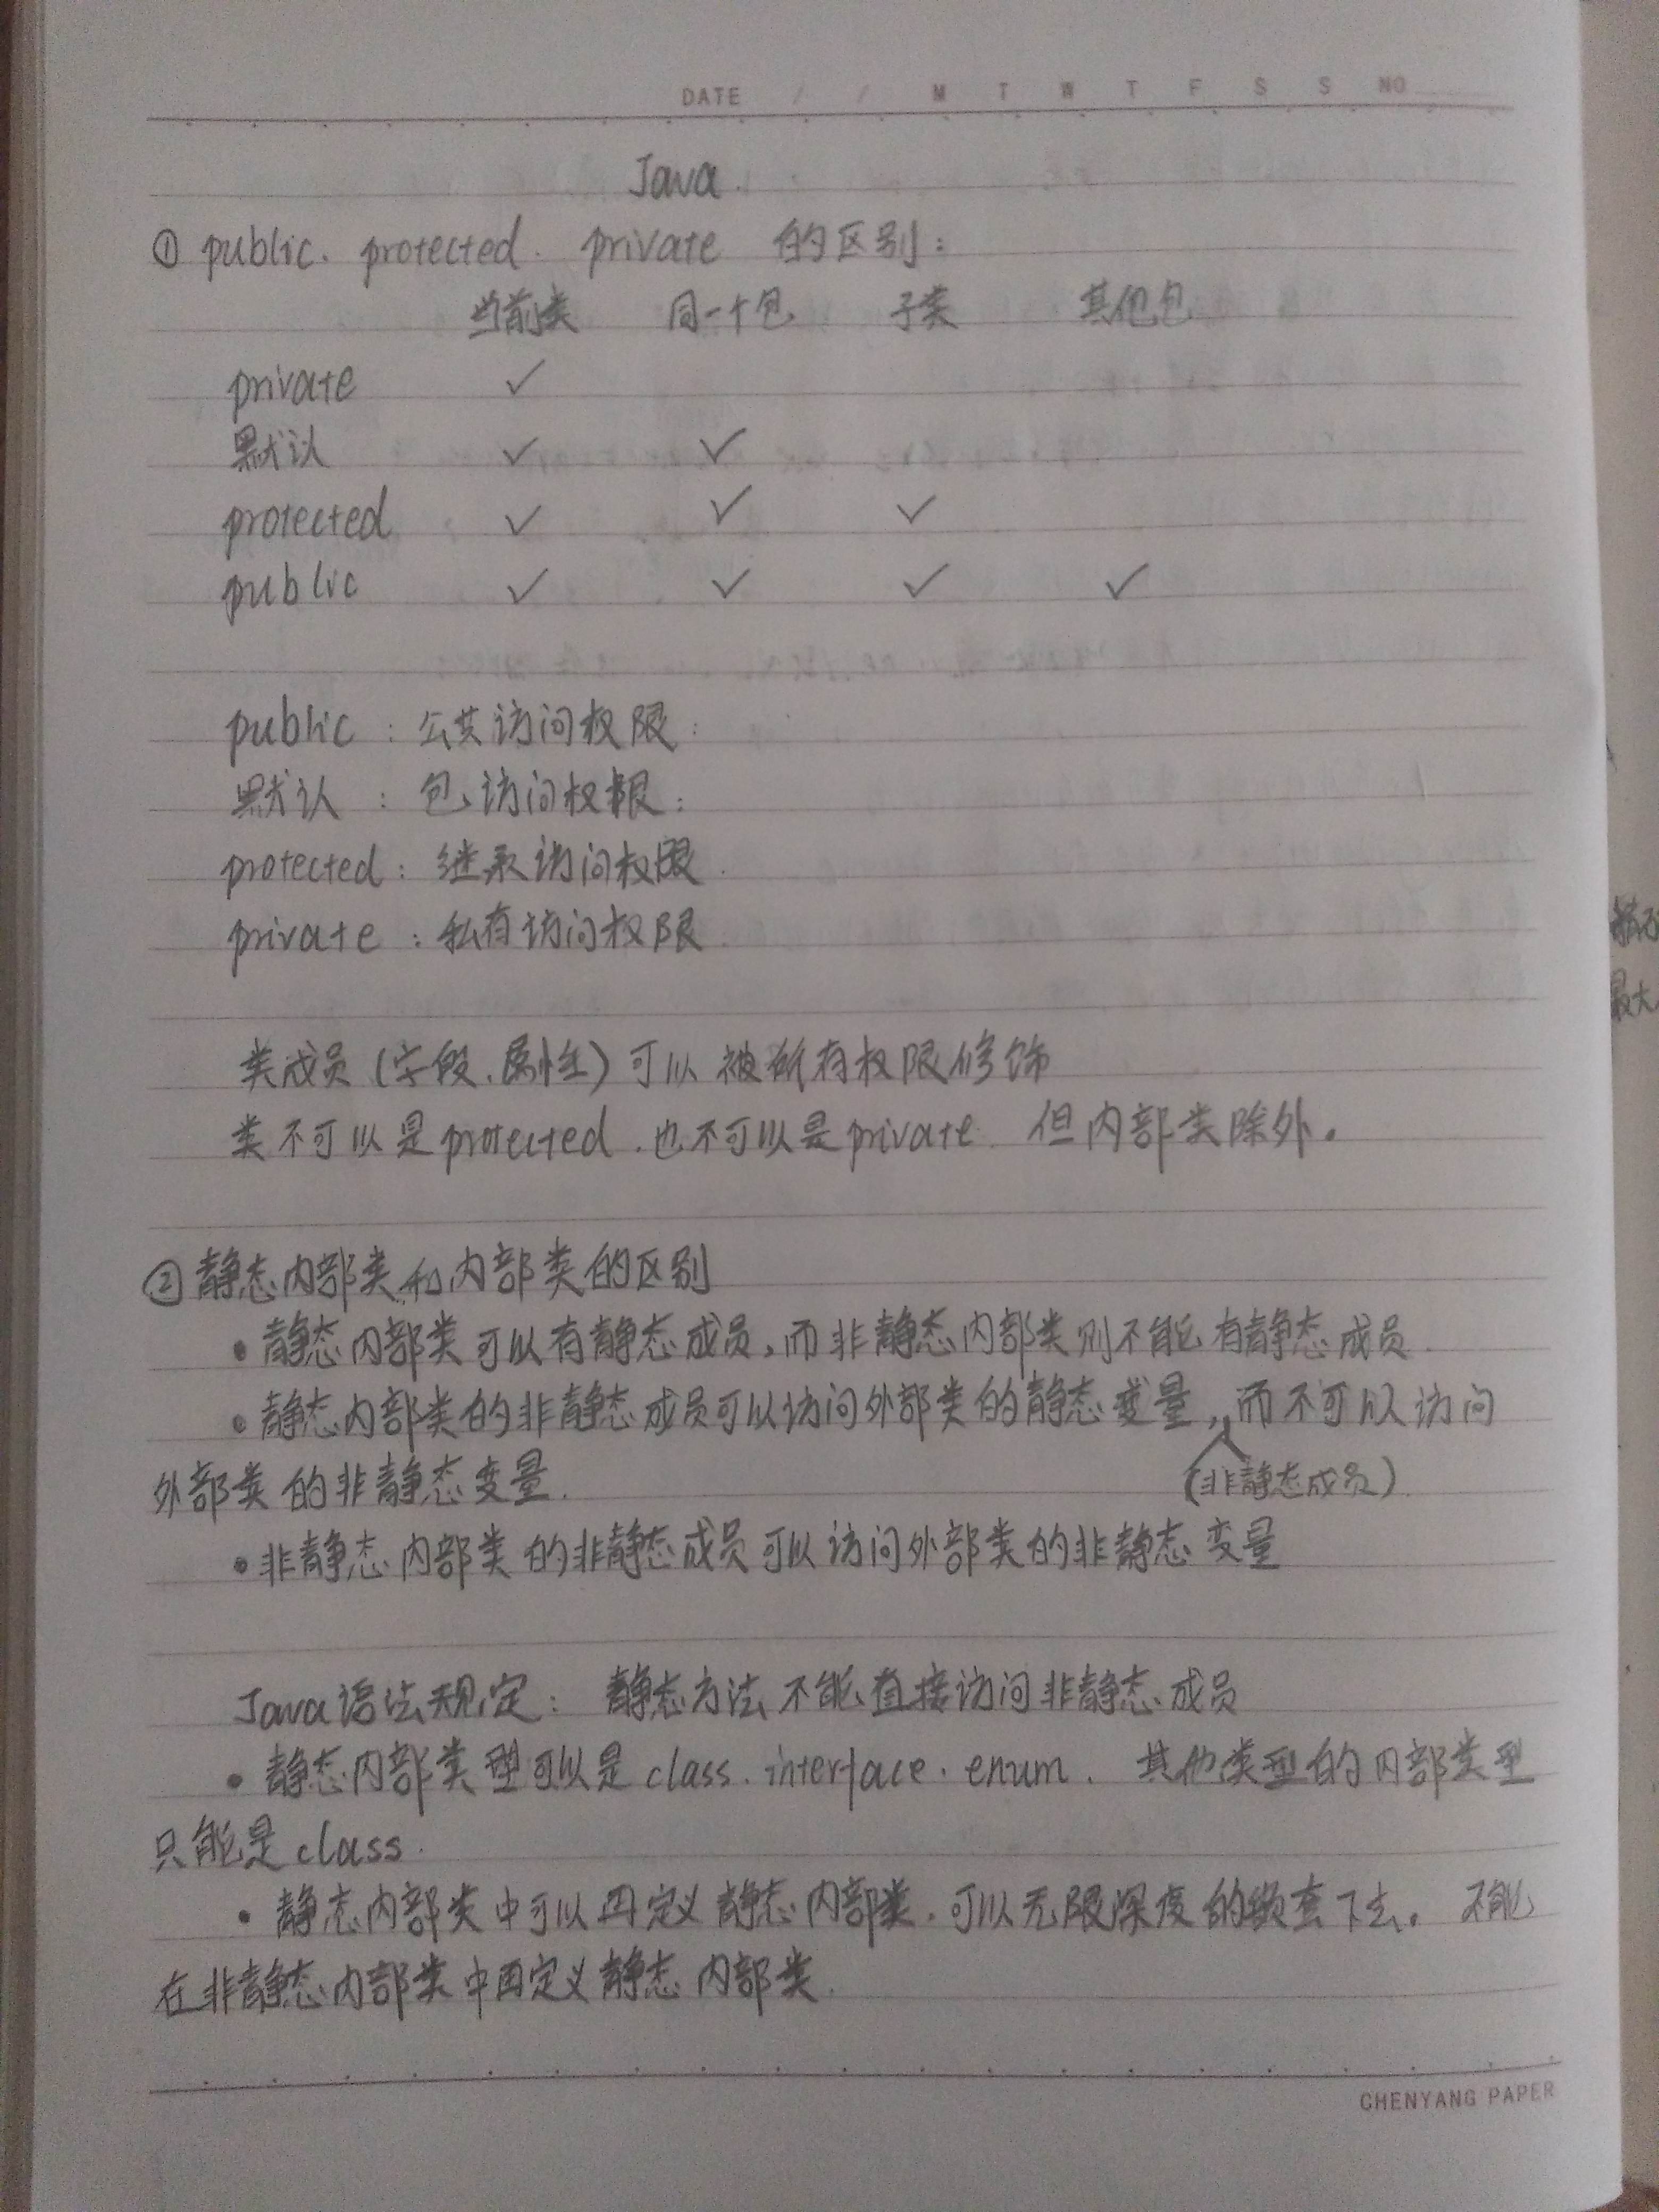 DATE / / M T W T F S S NO
Java.
① public. protected. private 的区别:
当前类 同一个包 子类 其他包
private ✓
默认 ✓ ✓
protected ✓ ✓ ✓
public ✓ ✓ ✓ ✓
public : 公共访问权限.
默认 : 包访问权限.
protected : 继承访问权限.
private : 私有访问权限.
类成员(字段、属性)可以被所有权限修饰
类不可以是protected.也不可以是private. 但内部类除外。
②静态内部类和内部类的区别
•静态内部类可以有静态成员,而非静态内部类则不能有静态成员.
•静态内部类的非静态成员可以访问外部类的静态变量,而不可以访问
外部类的非静态变量.
(非静态成员)
•非静态内部类的非静态成员可以访问外部类的非静态变量
Java语法规定: 静态方法不能直接访问非静态成员
•静态内部类型可以是class.interface.enum. 其他类型的内部类型
只能是class.
•静态内部类中可以再定义静态内部类.可以无限深度的嵌套下去。不能
在非静态内部类中再定义静态内部类.
CHENYANG PAPER
最大